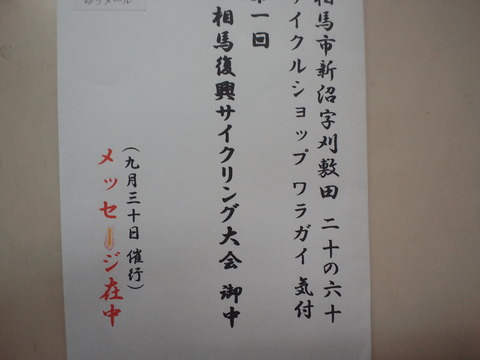 相馬市新沼字刈敷田 二十の六十
サイクルショップ ワラガイ 気付
第一回
相馬復興サイクリング大会 御中
(九月三十日 催行)
メッセージ在中
ゆうメール